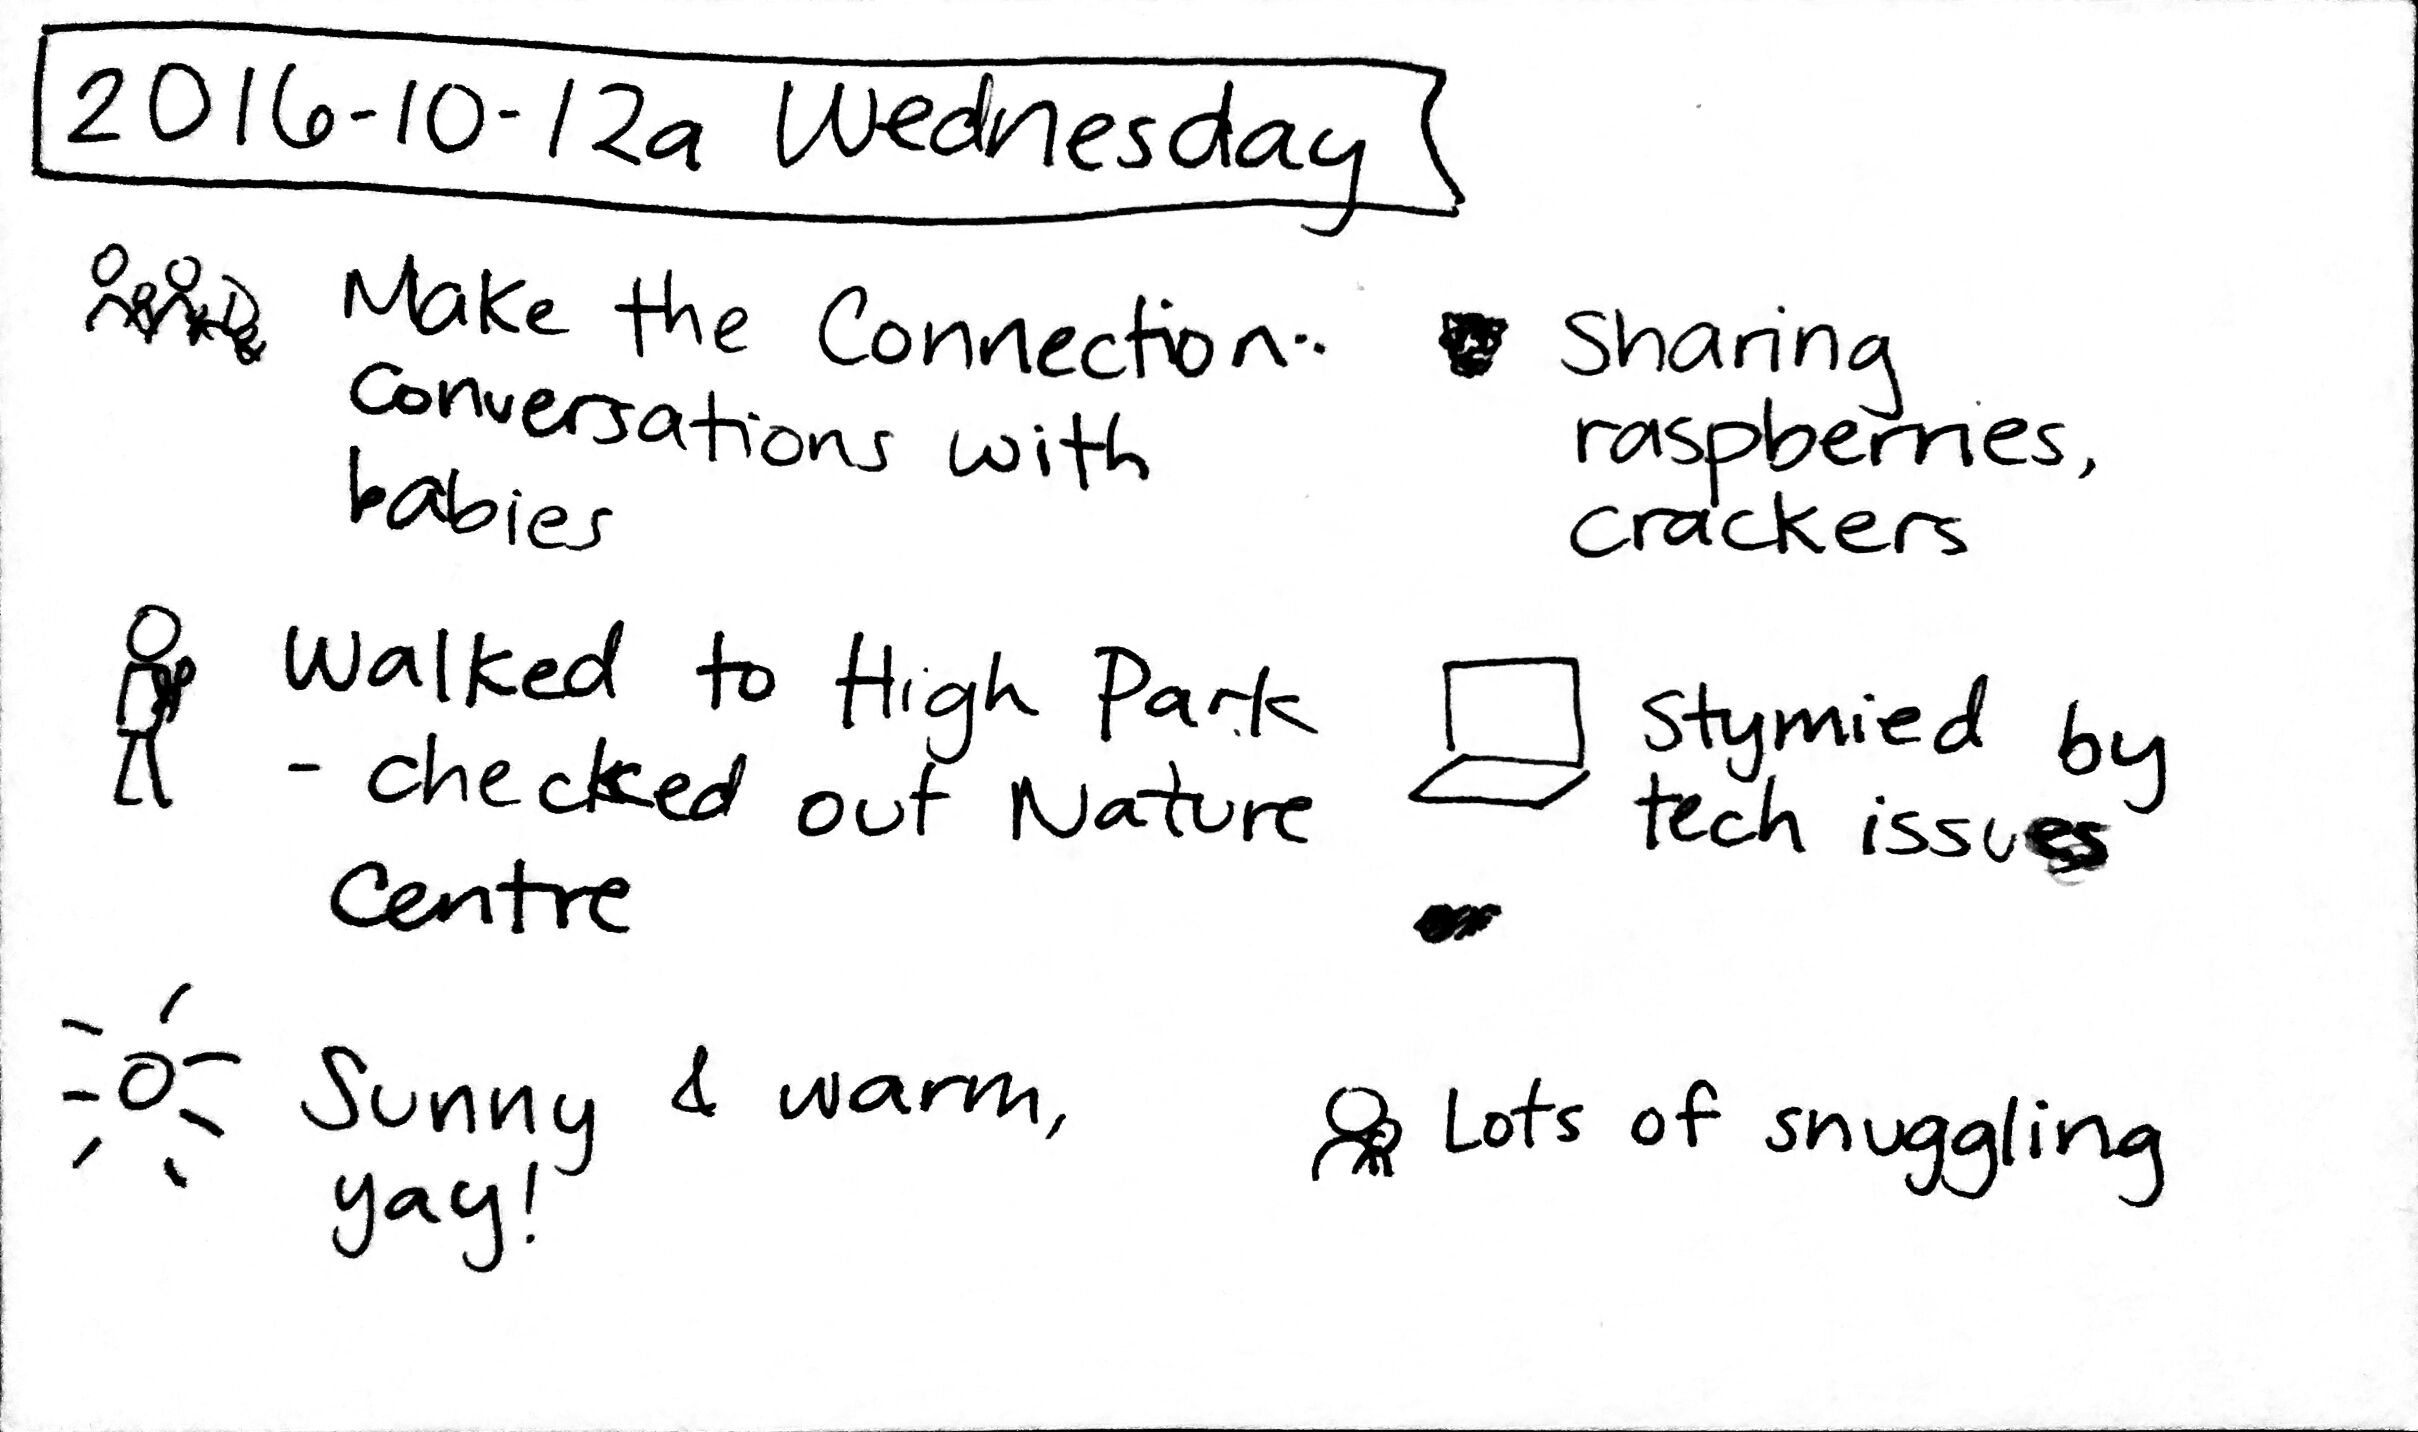 2016-10-12a Wednesday
Make the Connection..
conversations with
babies
Walked to High Park
- checked out Nature
Centre
Sunny & warm,
yay!
Sharing
raspberries,
crackers
Stymied by
tech issues
Lots of snuggling